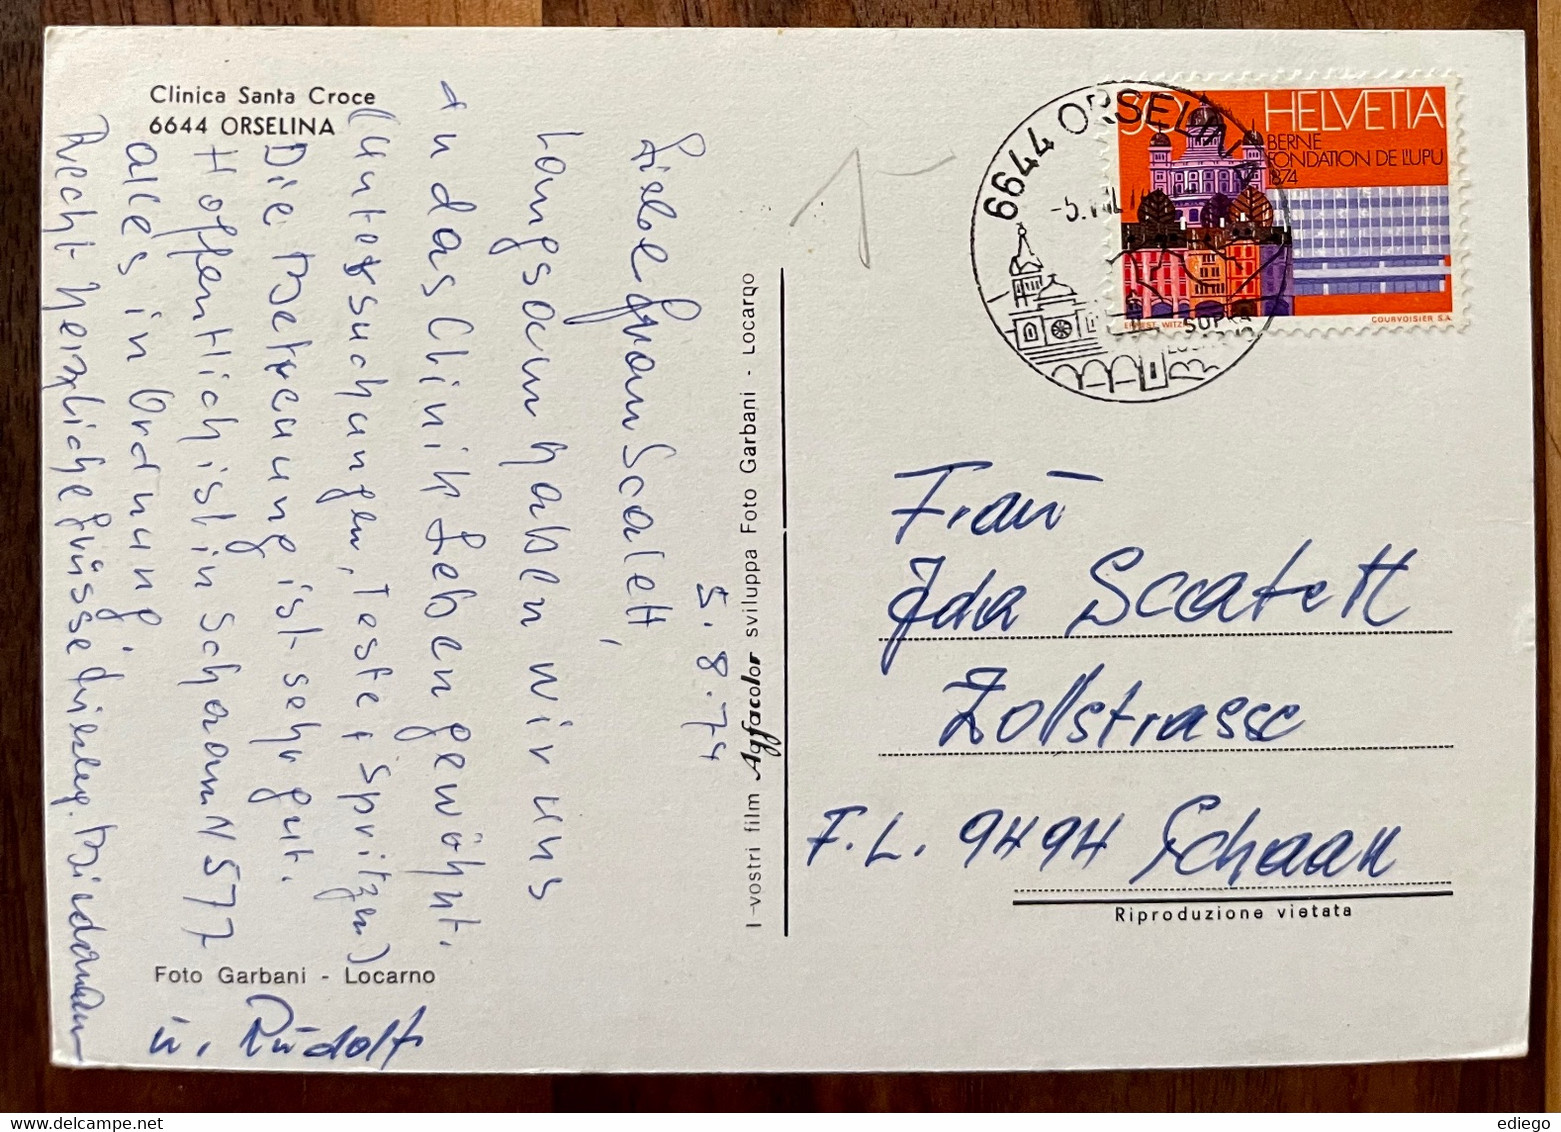 Clinica Santa Croce
6644 ORSELINA
5.8.74
Liebe Frau Scalett,
Langsam haben wir uns
an das Clinik Leben gewöhnt.
(Untersuchungen, Teste + Spritzen)
Die Betreuung ist sehr gut.
Hoffentlich ist in Schaan N 577
alles in Ordnung.
Recht herzliche Grüsse
u. Rudolf
Foto Garbani - Locarno
I vostri film Agfacolor sviluppa Foto Garbani - Locarno
6644 ORSELINA
-5.VIII.
SUPRA
HELVETIA
BERNE
FONDATION DE L'UPU
1874
ERNEST WITZ
COURVOISIER S.A.
Frau
Ida Scalett
Zollstrasse
F.L. 9494 Schaan
Riproduzione vietata
ediego